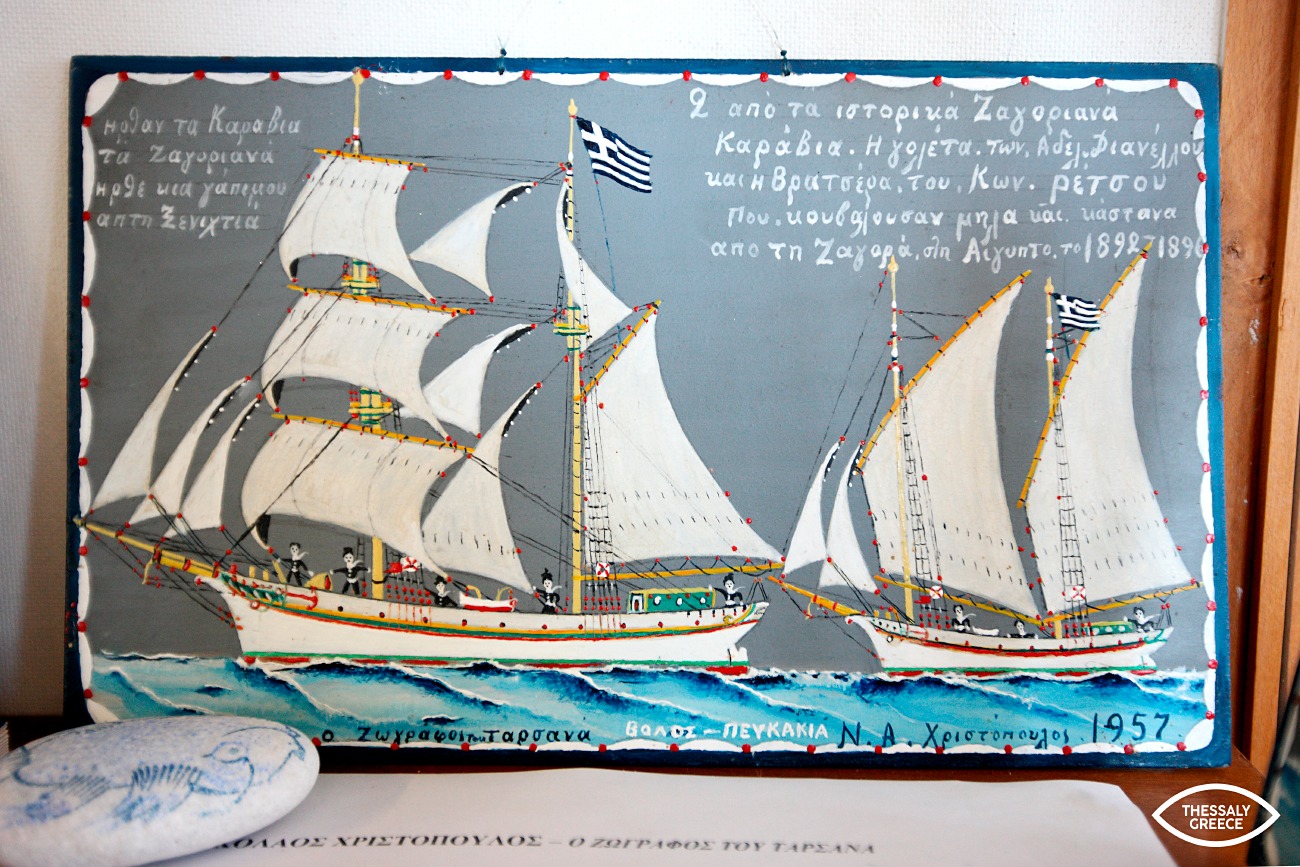 ηρθαν τα Καράβια
τα Ζαγοριανά
ηρθε και γάπιμου
απ τη Ξενιχτιά
2 από τα ιστορικά Ζαγοριανά
Καράβια. Η γολέτα. των, Αδελ. Φιανέλλου
και η Βρατσέρα, του, Κων. ρετσου
Που. κουβαλουσαν μηλα και. κάστανα
απο τη Ζαγορά, στη Αίγυπτο, το 1892-1896
ο Ζωγράφος του Ταρσανα ΒΟΛΟΣ – ΠΕΥΚΑΚΙΑ Ν. Α. Χριστόπουλος 1957
ΧΡΙΣΤΟΠΟΥΛΟΣ – Ο ΖΩΓΡΑΦΟΣ ΤΟΥ ΤΑΡΣΑΝΑ
THESSALY
GREECE